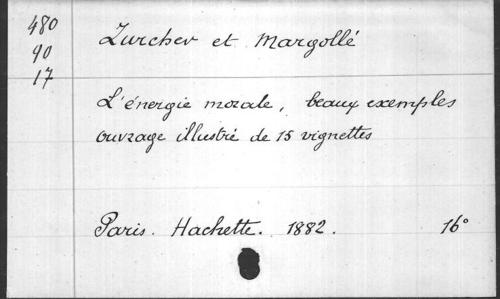 480
90
17
Zurcher et Margollé
L'énergie morale, beaux exemples
ouvrage illustré de 15 vignettes
Paris. Hachette. 1882. 16°